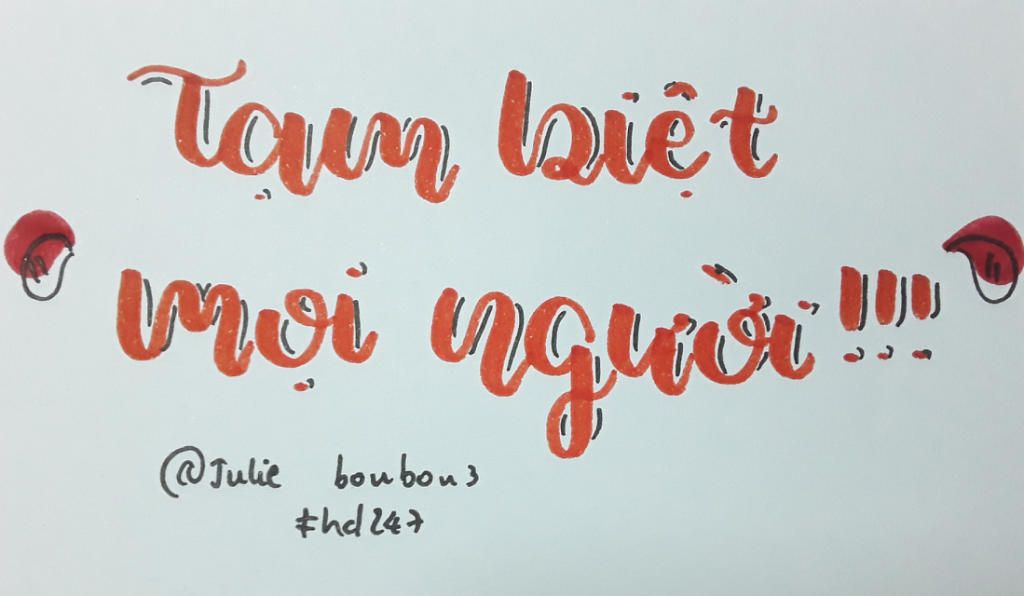 Tạm biệt
mọi người!!!
@Julie bonbon3
#hd247